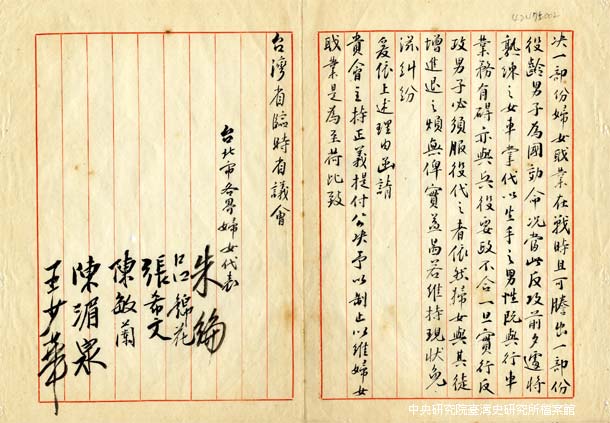 决一部份婦女职業在戰時且可騰出一部份
役齡男子為國効命況當此反攻前夕遽將
熟練之女車掌代以生手之男性既與行車
業務有碍亦與兵役要政不合一旦實行反
攻男子必須服役代之者依然婦女與其徒
增進退之煩與俾實益曷若維持現狀免
添糾紛
爰依上述理由函請
貴會主持正義提付公决予以制止以維婦女
職業是為至荷此致
台灣省臨時省議會
台北市各界婦女代表
朱綸
呂錦花
張希文
陳敏蘭
陳湄泉
王少華
中央研究院臺灣史研究所檔案館